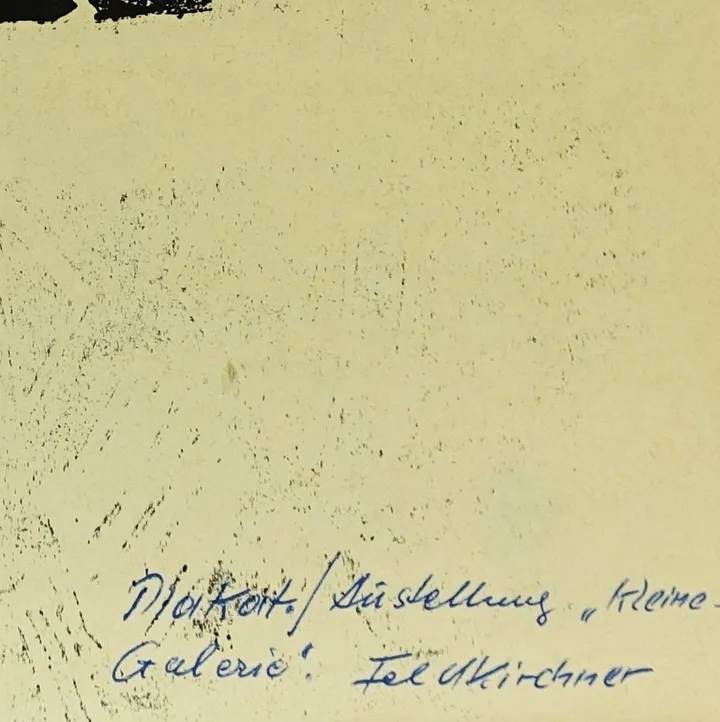 Plakat./Austellung „Kleine-
Galerie". Feldkirchner